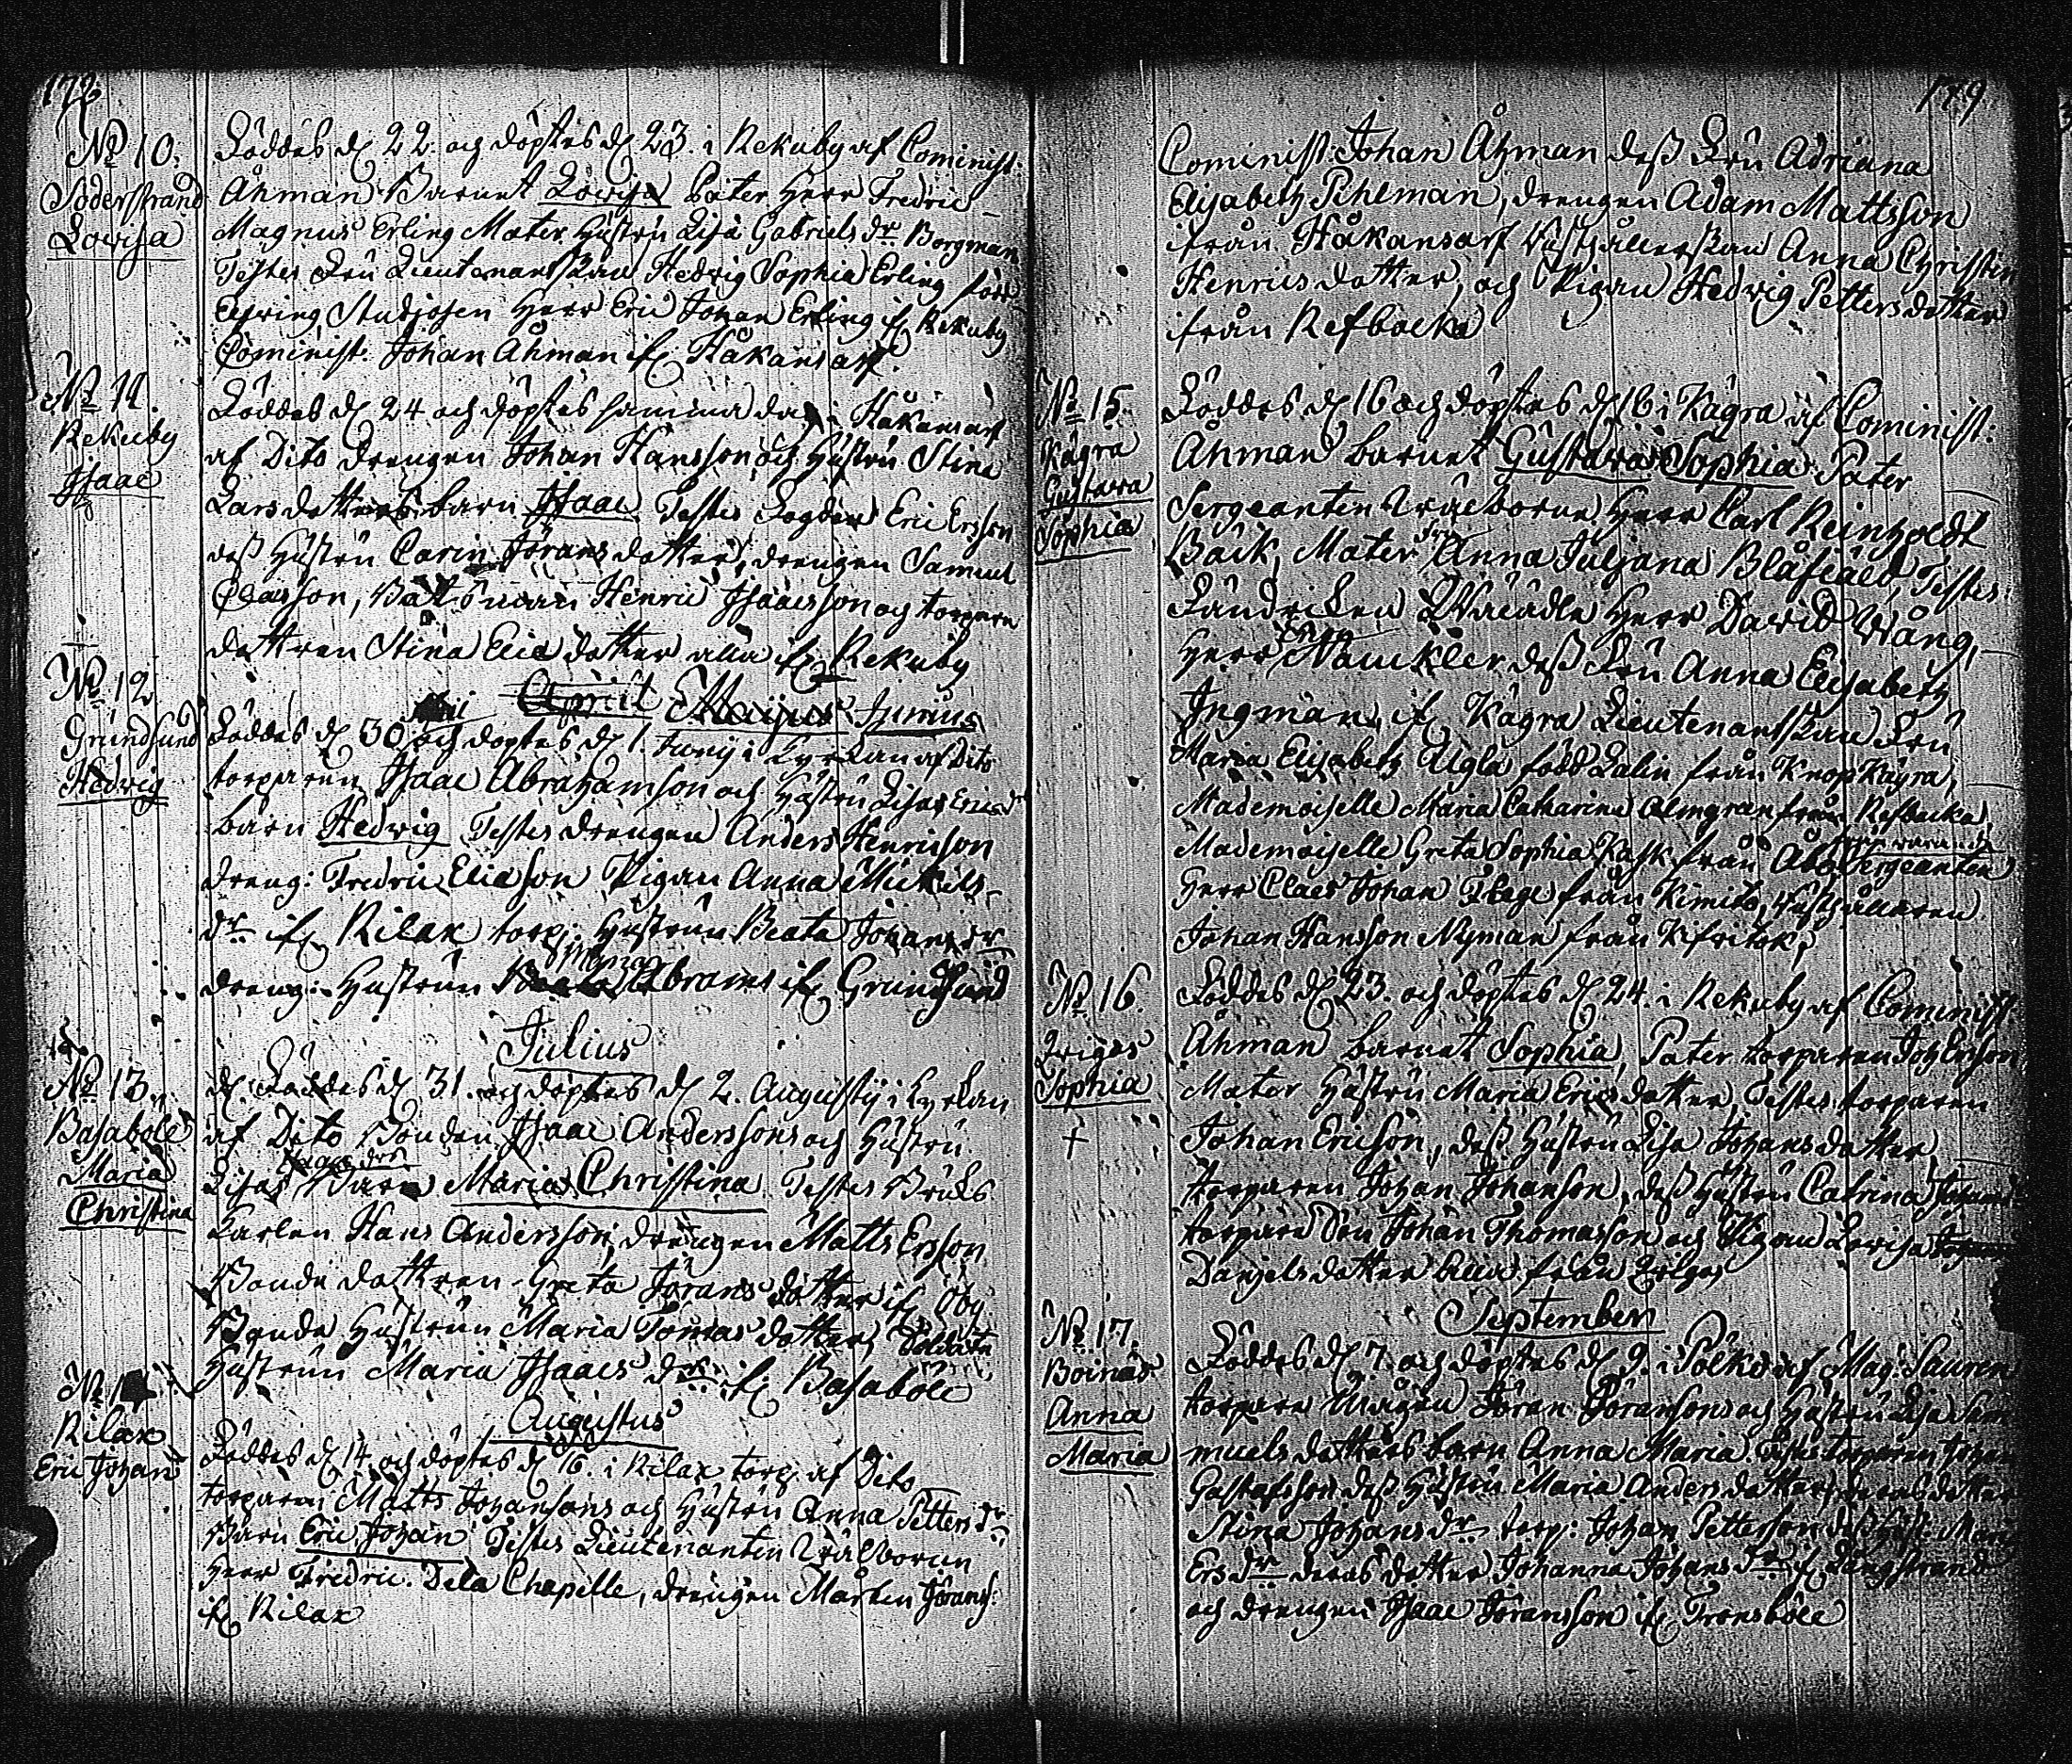 178
No 10.
Söderstrand
Lovisa
Föddes d. 22. och döptes d. 23. i Rekuby af Cominist:
Åhman Barnet Lovisa Pater Herr Fredric
Magnus Erling Mater Hustru Lisa Gabriels dr. Borgman
Testes Fru Lieutenantskan Hedvig Sophia Erling född
Studiosen Herr Eric Johan Erling if. Rekuby
Cominist. Johan Åhman if. Håkansarf
No 11.
Rekuby
Isaac
Föddes d. 24 och döptes samma dag i Håkansarf
af Dito drengen Johan Hansson och Hustru Stina
Lars dotters barn Isaac Testes Eric Ersson
dess Hustru Carin Jörans dotter, drengen Samuel
Claesson, Båtsman Henric Isaacsson och torpare
dottren Stina Erics dotter alla if. Rekuby
April Maijus Junius
No 12
Grundsund
Hedvig
Föddes d. 30 och döptes d. 1. Junij i Kyrkan af Dito
torparen Isaac Abrahamson och Hustru Lisas Erics dr
barn Hedwig Testes drengen Anders Henricsson
dreng: Fredric Eliason Pigan Anna Mickels
dr. if. Rilax torp. Hustrun Beata Johans dr
dreng: Hustrun Abrams if. Grundsund
Julius
No 13.
Basaböle
Maria
Christina
d. Föddes d. 31. och döptes d. 2. Augustij i Kyrkan
af Dito Bonden Isaac Anderssons och Hustru
Lisas Barn Maria Christina Testes Bruks
Karlen Hans Andersson, drengen Matts Ersson
Bonde dottren Greta Jörans dotter if. Öby
Bonde Hustrun Maria Tomas dotter, Soldate
Hustrun Maria Isaacs dr. if. Basaböle
Augustus
No 14
Rilax
Eric Johan
Föddes d. 14 och döptes d. 16. i Rilax torp. af Dito
torparen Matts Johansons och Hustru Anna Petters dr
Barn Eric Johan Testes Lieutenanten Välborne
Herr Fredric Dela Chapelle, drengen Mårten Jörans:
if. Rilax
179
Cominist: Johan Åhman dess Fru Adriana
Elisabeth Pihlman, drengen Adam Mattsson
ifrån Håkansarf Hushållerskan Anna Christin
Henrics dotter, och Pigan Hedwig Petters dotter
ifrån Refbacka
No 15.
Kågra
Gustava
Sophia
Föddes d. 16 och döptes d. 16 i Kågra af Cominist:
Åhman barnet Gustava Sophia Pater
Sergeanten Välborne Herr Carl Reinholdt
Bäck, Mater Fru Anna Juljana Blåfield, Testes
Fändricken Wälädle Herr David Wång,
Herr Nauckler dess Fru Anna Elisabeth
Ingman if. Kågra Lieutenantskan Fru
Maria Elisabeth Aigla född Calin från Knopkägra,
Mademoiselle Maria Catharina Almgran från Refbacka
Mademoiselle Greta Sophia Kask från Åbo Sergeanten
Herr Claes Johan Flege från Kimito, Hushållaren
Johan Hansson Nyman från
No 16.
Sophia
†
Föddes d. 23. och döptes d. 24. i Rekuby af Cominist
Åhman barnet Sophia, Pater torparen Joh Ersson
Mater Hustru Maria Erics dotter, Testes torparen
Johan Ericson, dess Hustru Lisa Johans dotter
torparen Johan Johanson, dess Hustru Catrina
torpare Son Johan Thomasson och Pigan Lovisa
Danjels dotter alla från
September
No 17.
Anna
Maria
Föddes d. 7. och döptes d. 9. i Pölkö af Mag: Lauren
torpare Mågen Jöran Jöransons och Hustru Lisa Sam
muels dotters barn Anna Maria. Testes torparen Johan
Gustafsson dess Hustru Maria Anders dotter, deras dotter
Stina Johans dr. torp: Johan Petterson dess Hust: Maria
Ers dr. deras dotter Johanna Johans dr. if. Långstrand
och drengen Isaac Jöransson if. Tronsböle